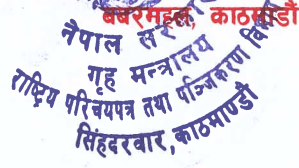 बबरमहल, काठमाडौं
नेपाल
गृह मन्त्रालय
राष्ट्रिय परिचयपत्र तथा पञ्जिकरण
सिंहदरवार, काठमाण्डौ